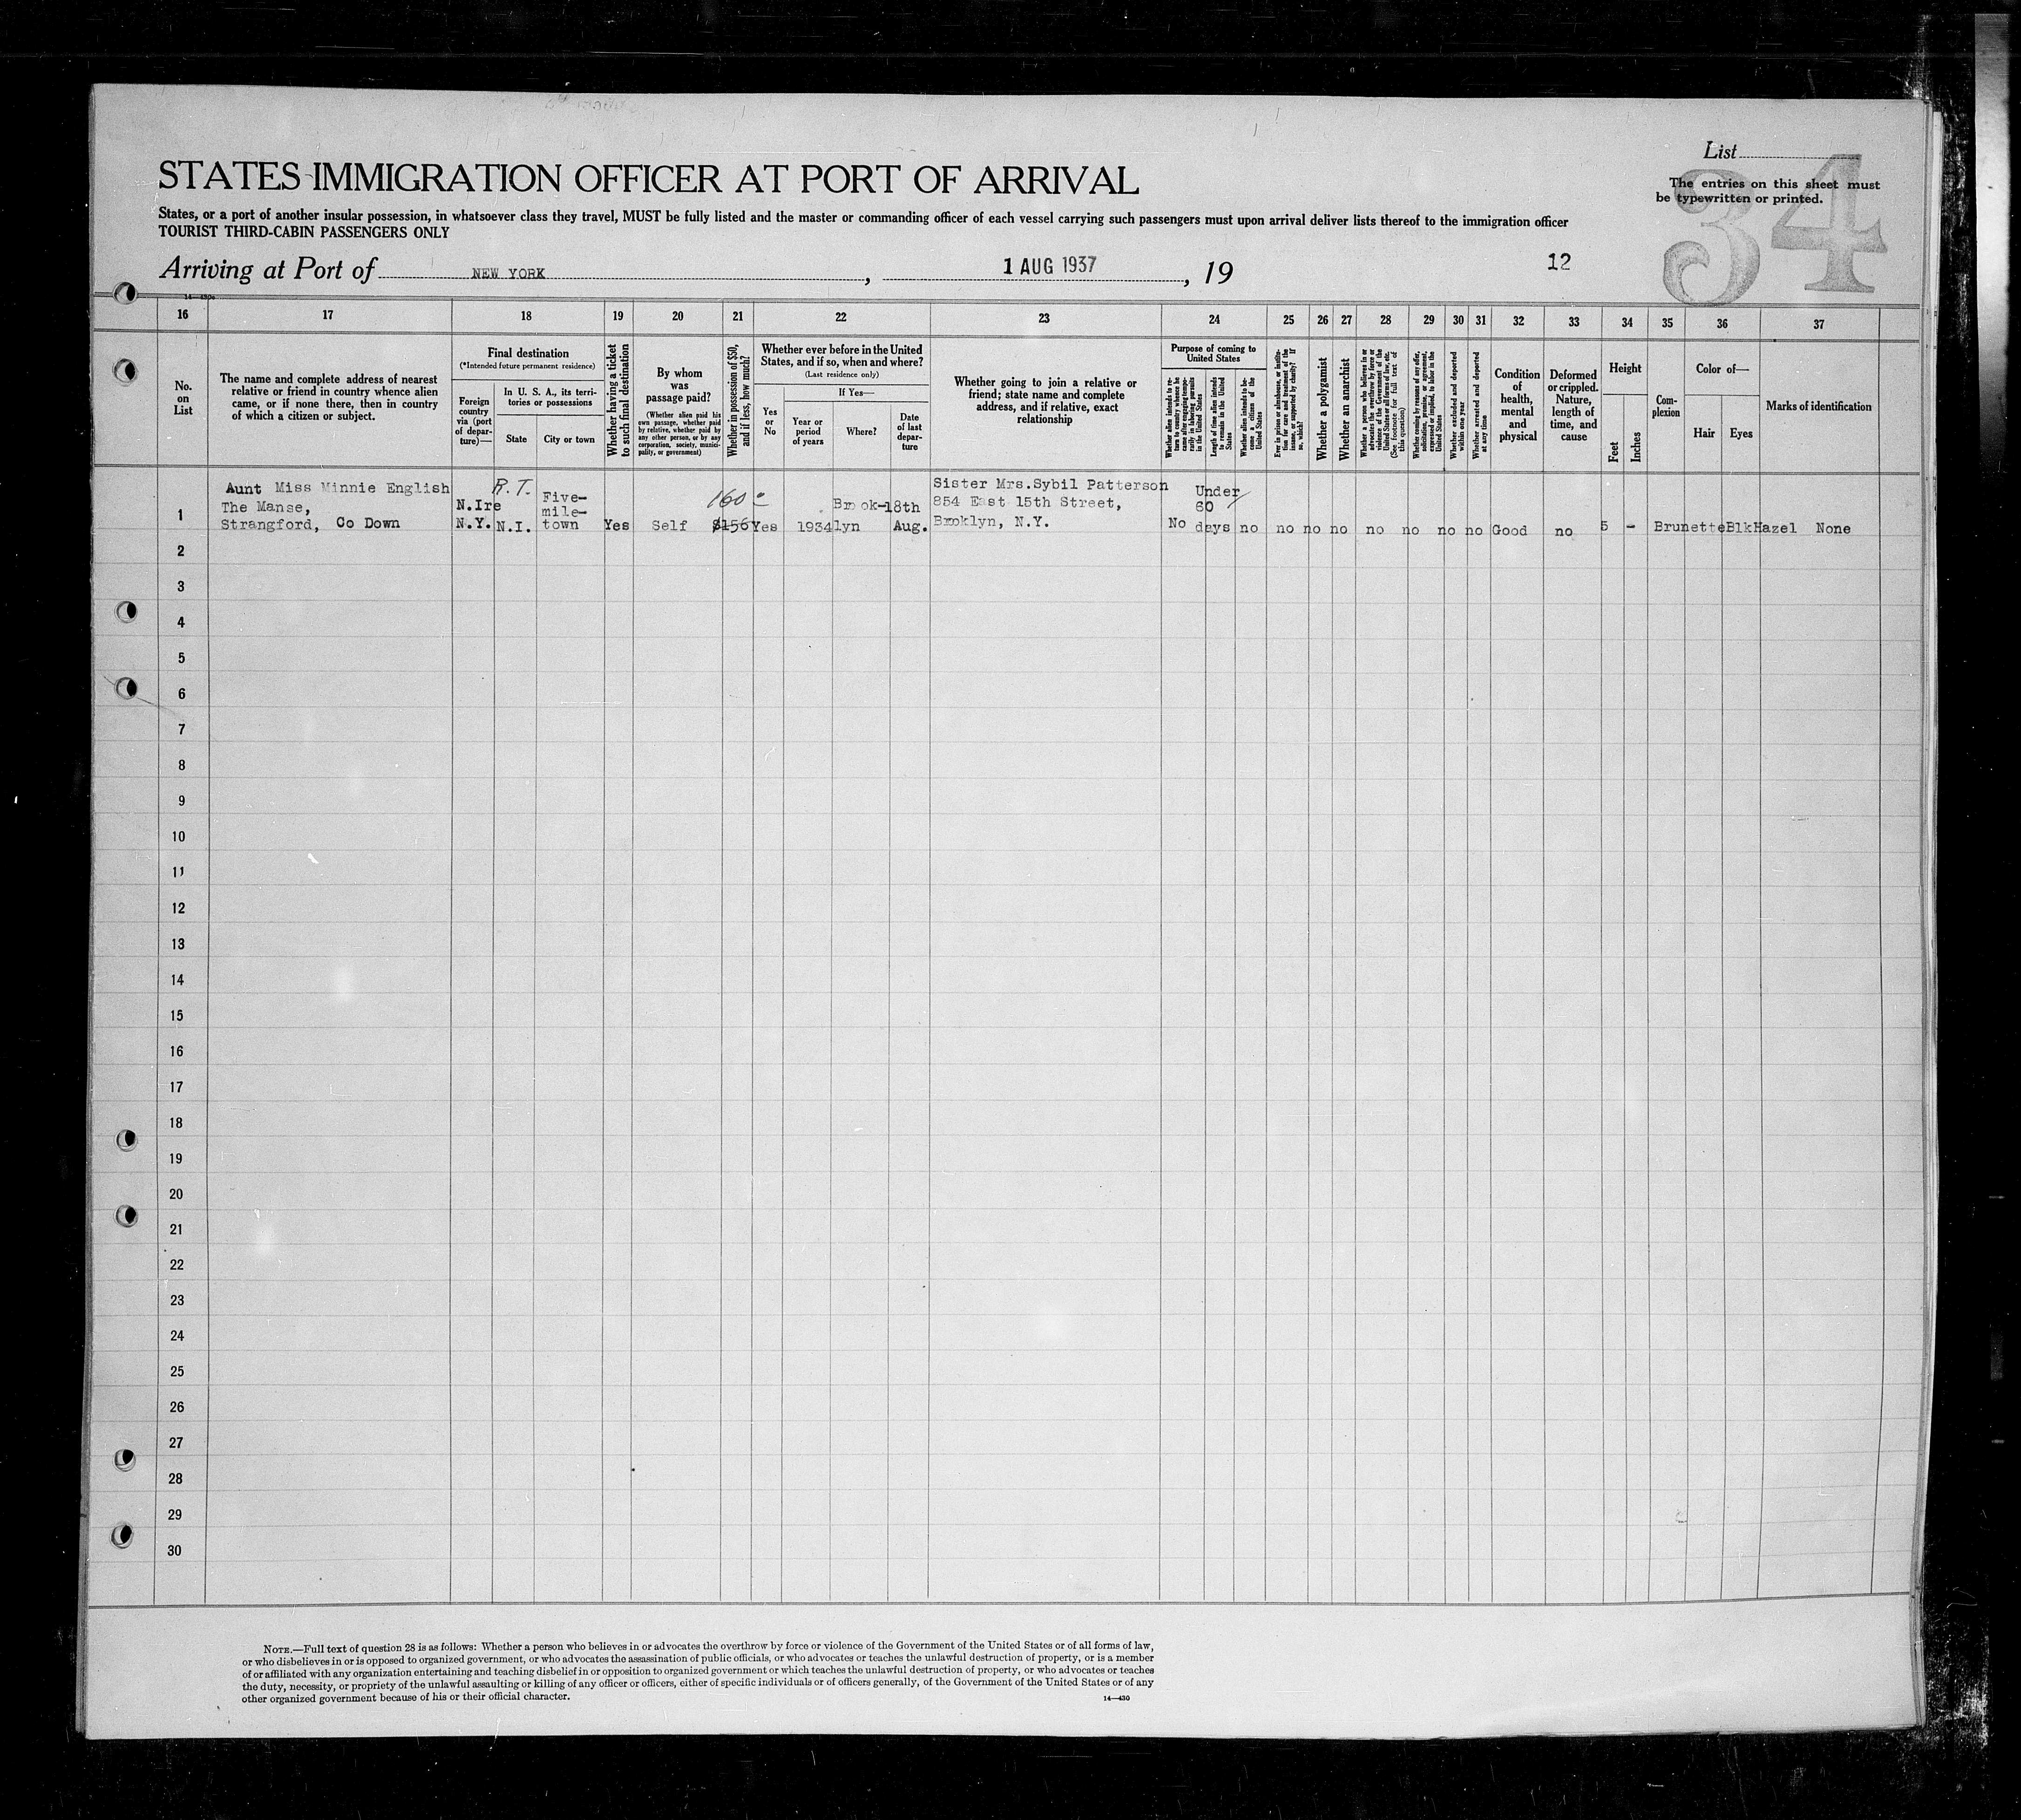 List
34
The entries on this sheet must
be typewritten or printed.
STATES IMMIGRATION OFFICER AT PORT OF ARRIVAL
States, or a port of another insular possession, in whatsoever class they travel, MUST be fully listed and the master or commanding officer of each vessel carrying such passengers must upon arrival deliver lists thereof to the immigration officer
TOURIST THIRD-CABIN PASSENGERS ONLY
Arriving at Port of NEW YORK, 1 AUG 1937, 19
12
16 17 18 19 20 21 22 23 24 25 26 27 28 29 30 31 32 33 34 35 36 37
No.
on
List
The name and complete address of nearest
relative or friend in country whence alien
came, or if none there, then in country
of which a citizen or subject.
Final destination
(*Intended future permanent residence)
Foreign
country
via (port
of depar-
ture)—
In U. S. A., its terri-
tories or possessions
State
City or town
Whether having a ticket
to such final destination
By whom
was
passage paid?
(Whether alien paid his
own passage, whether paid
by relative, whether paid by
any other person, or by any
corporation, society, munici-
pality, or government)
Whether in possession of $50,
and if less, how much?
Whether ever before in the United
States, and if so, when and where?
(Last residence only)
Yes
or
No
If Yes—
Year or
period
of years
Where?
Date
of last
depar-
ture
Whether going to join a relative or
friend; state name and complete
address, and if relative, exact
relationship
Purpose of coming to
United States
Whether alien intends to re-
turn to country whence he
came after engaging tempo-
rarily in laboring pursuits
in the United States
Length of time alien intends
to remain in the United
States
Whether alien intends to be-
come a citizen of the
United States
Ever in prison or almshouse, or institu-
tion for care and treatment of the
insane, or supported by charity? If
so, which?
Whether a polygamist
Whether an anarchist
Whether a person who believes in or
advocates the overthrow by force or
violence of the Government of the
United States or all forms of law, etc.
(See footnote for full text of
this question)
Whether coming by reason of any offer,
solicitation, promise, or agreement,
expressed or implied, to labor in the
United States
Whether excluded and deported
within one year
Whether arrested and deported
at any time
Condition
of
health,
mental
and
physical
Deformed
or crippled.
Nature,
length of
time, and
cause
Height
Feet
Inches
Com-
plexion
Color of—
Hair
Eyes
Marks of identification
1
Aunt Miss Minnie English
The Manse,
Strangford, Co Down
N.Ire
N.Y.
R.T.
N.I.
Five-
mile-
town
Yes
Self
160
$156
Yes
1934
Brook-
lyn
18th
Aug.
Sister Mrs.Sybil Patterson
854 East 15th Street,
Broklyn, N.Y.
No
Under
60
days
no
no no no no no no no Good no 5 - Brunette Blk Hazel None
2
3
4
5
6
7
8
9
10
11
12
13
14
15
16
17
18
19
20
21
22
23
24
25
26
27
28
29
30
NOTE.—Full text of question 28 is as follows: Whether a person who believes in or advocates the overthrow by force or violence of the Government of the United States or of all forms of law,
or who disbelieves in or is opposed to organized government, or who advocates the assassination of public officials, or who advocates or teaches the unlawful destruction of property, or is a member
of or affiliated with any organization entertaining and teaching disbelief in or opposition to organized government or which teaches the unlawful destruction of property, or who advocates or teaches
the duty, necessity, or propriety of the unlawful assaulting or killing of any officer or officers, either of specific individuals or of officers generally, of the Government of the United States or of any
other organized government because of his or their official character.
14—430